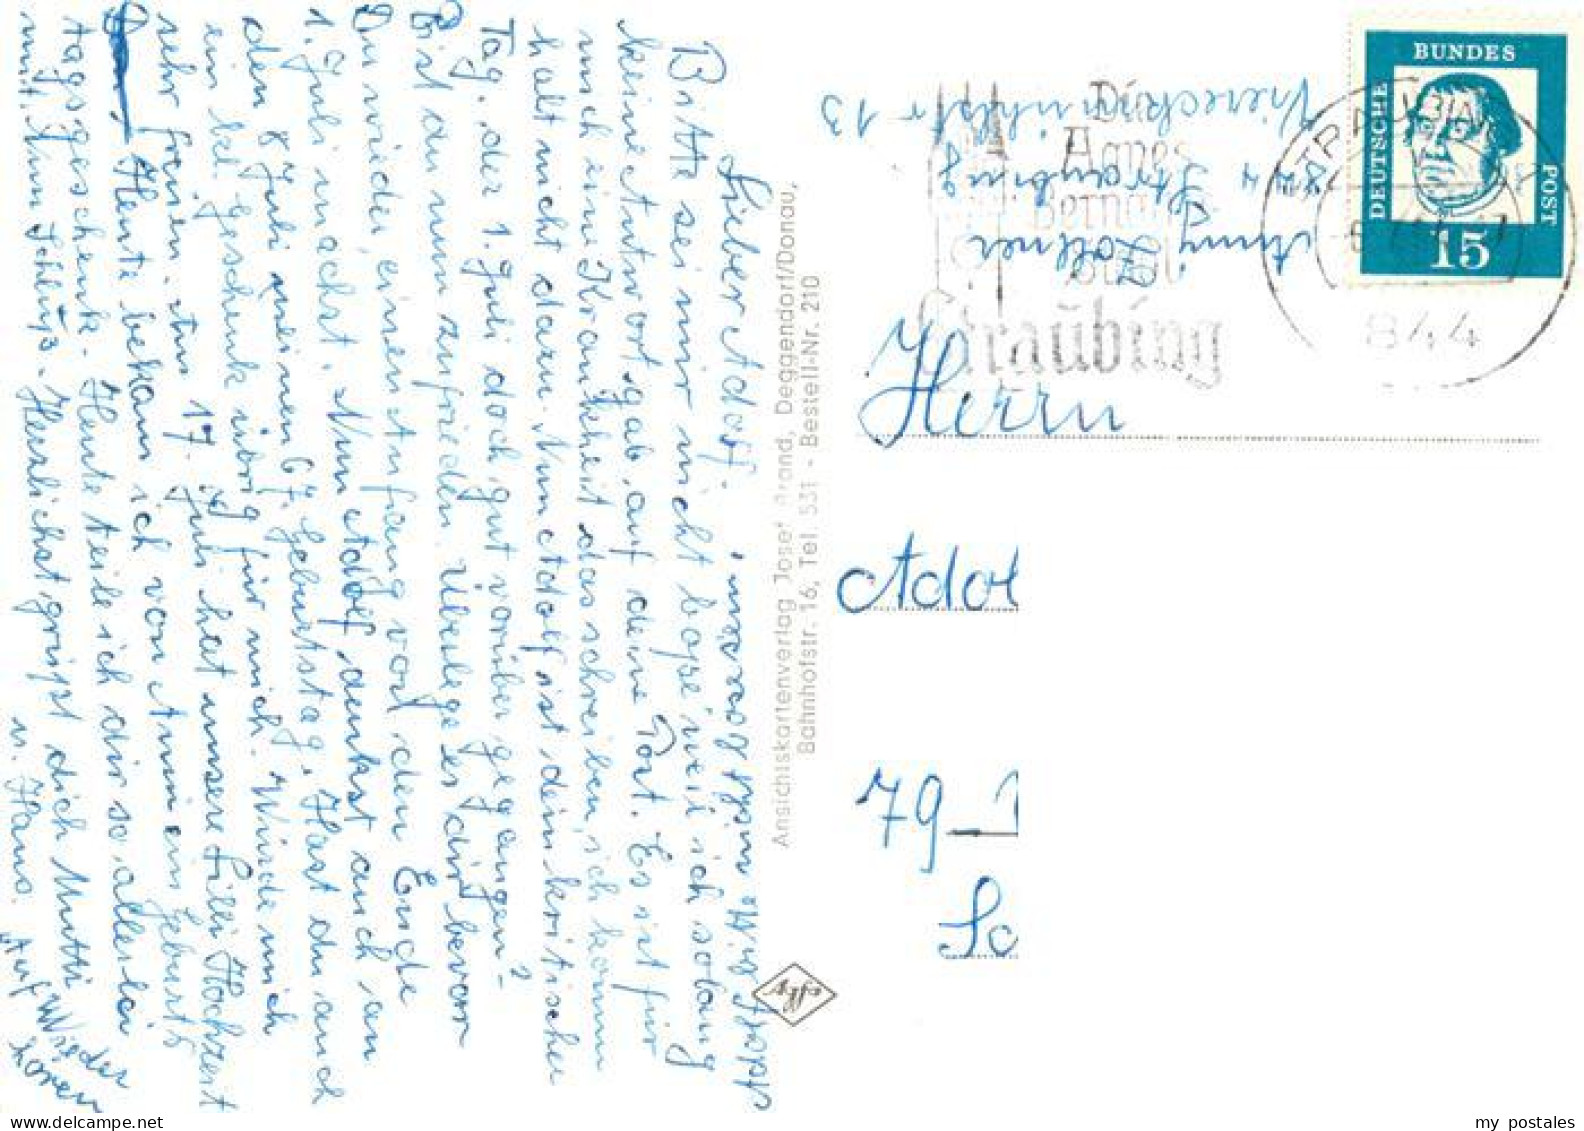 Lieber Adolf.
Bitte sei mir nicht böse weil ich solang
keine Antwort gab, auf deine Post. Es ist für
mich eine Krankheit das schreiben, ich komm
halt nicht dazu. Nun Adolf ist dein kritischer
Tag, der 1. Juli doch gut vorüber gegangen?
Bist du nun zufrieden. Überlege es dir bevor
Du wieder, einen Anfang vor dem Ende
1. Juli machst. Nun Adolf, denkst auch an
den 8 Juli meinen 67. Geburtstag, Hast du auch
ein kl. Geschenk übrig für mich. Würde mich
sehr freuen. Am 17. Juli hat unsere Lilli Hochzeit
Heute bekam ich von Anni ein Geburts
tagsgeschenk. Heute teile ich dir so allerlei
mit. Nun Schluß. Herzlichst grüßt dich Mutti
u. Hans.
Auf Wieder
hören
Ansichtskartenverlag Josef Brand, Deggendorf/Donau,
Bahnhofstr. 16, Tel. 531 - Bestell-Nr. 210
Anny Zollner
844 Straubing
13
Die
Agnes
Bernauer
Stadt
Straubing
STRAUBING
844
DEUTSCHE
BUNDES
POST
15
Herrn
Adol
79
So
my postales